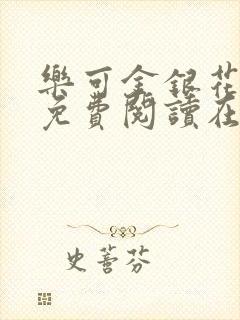 樂可金銀花
免費閱讀在
史蕾芬